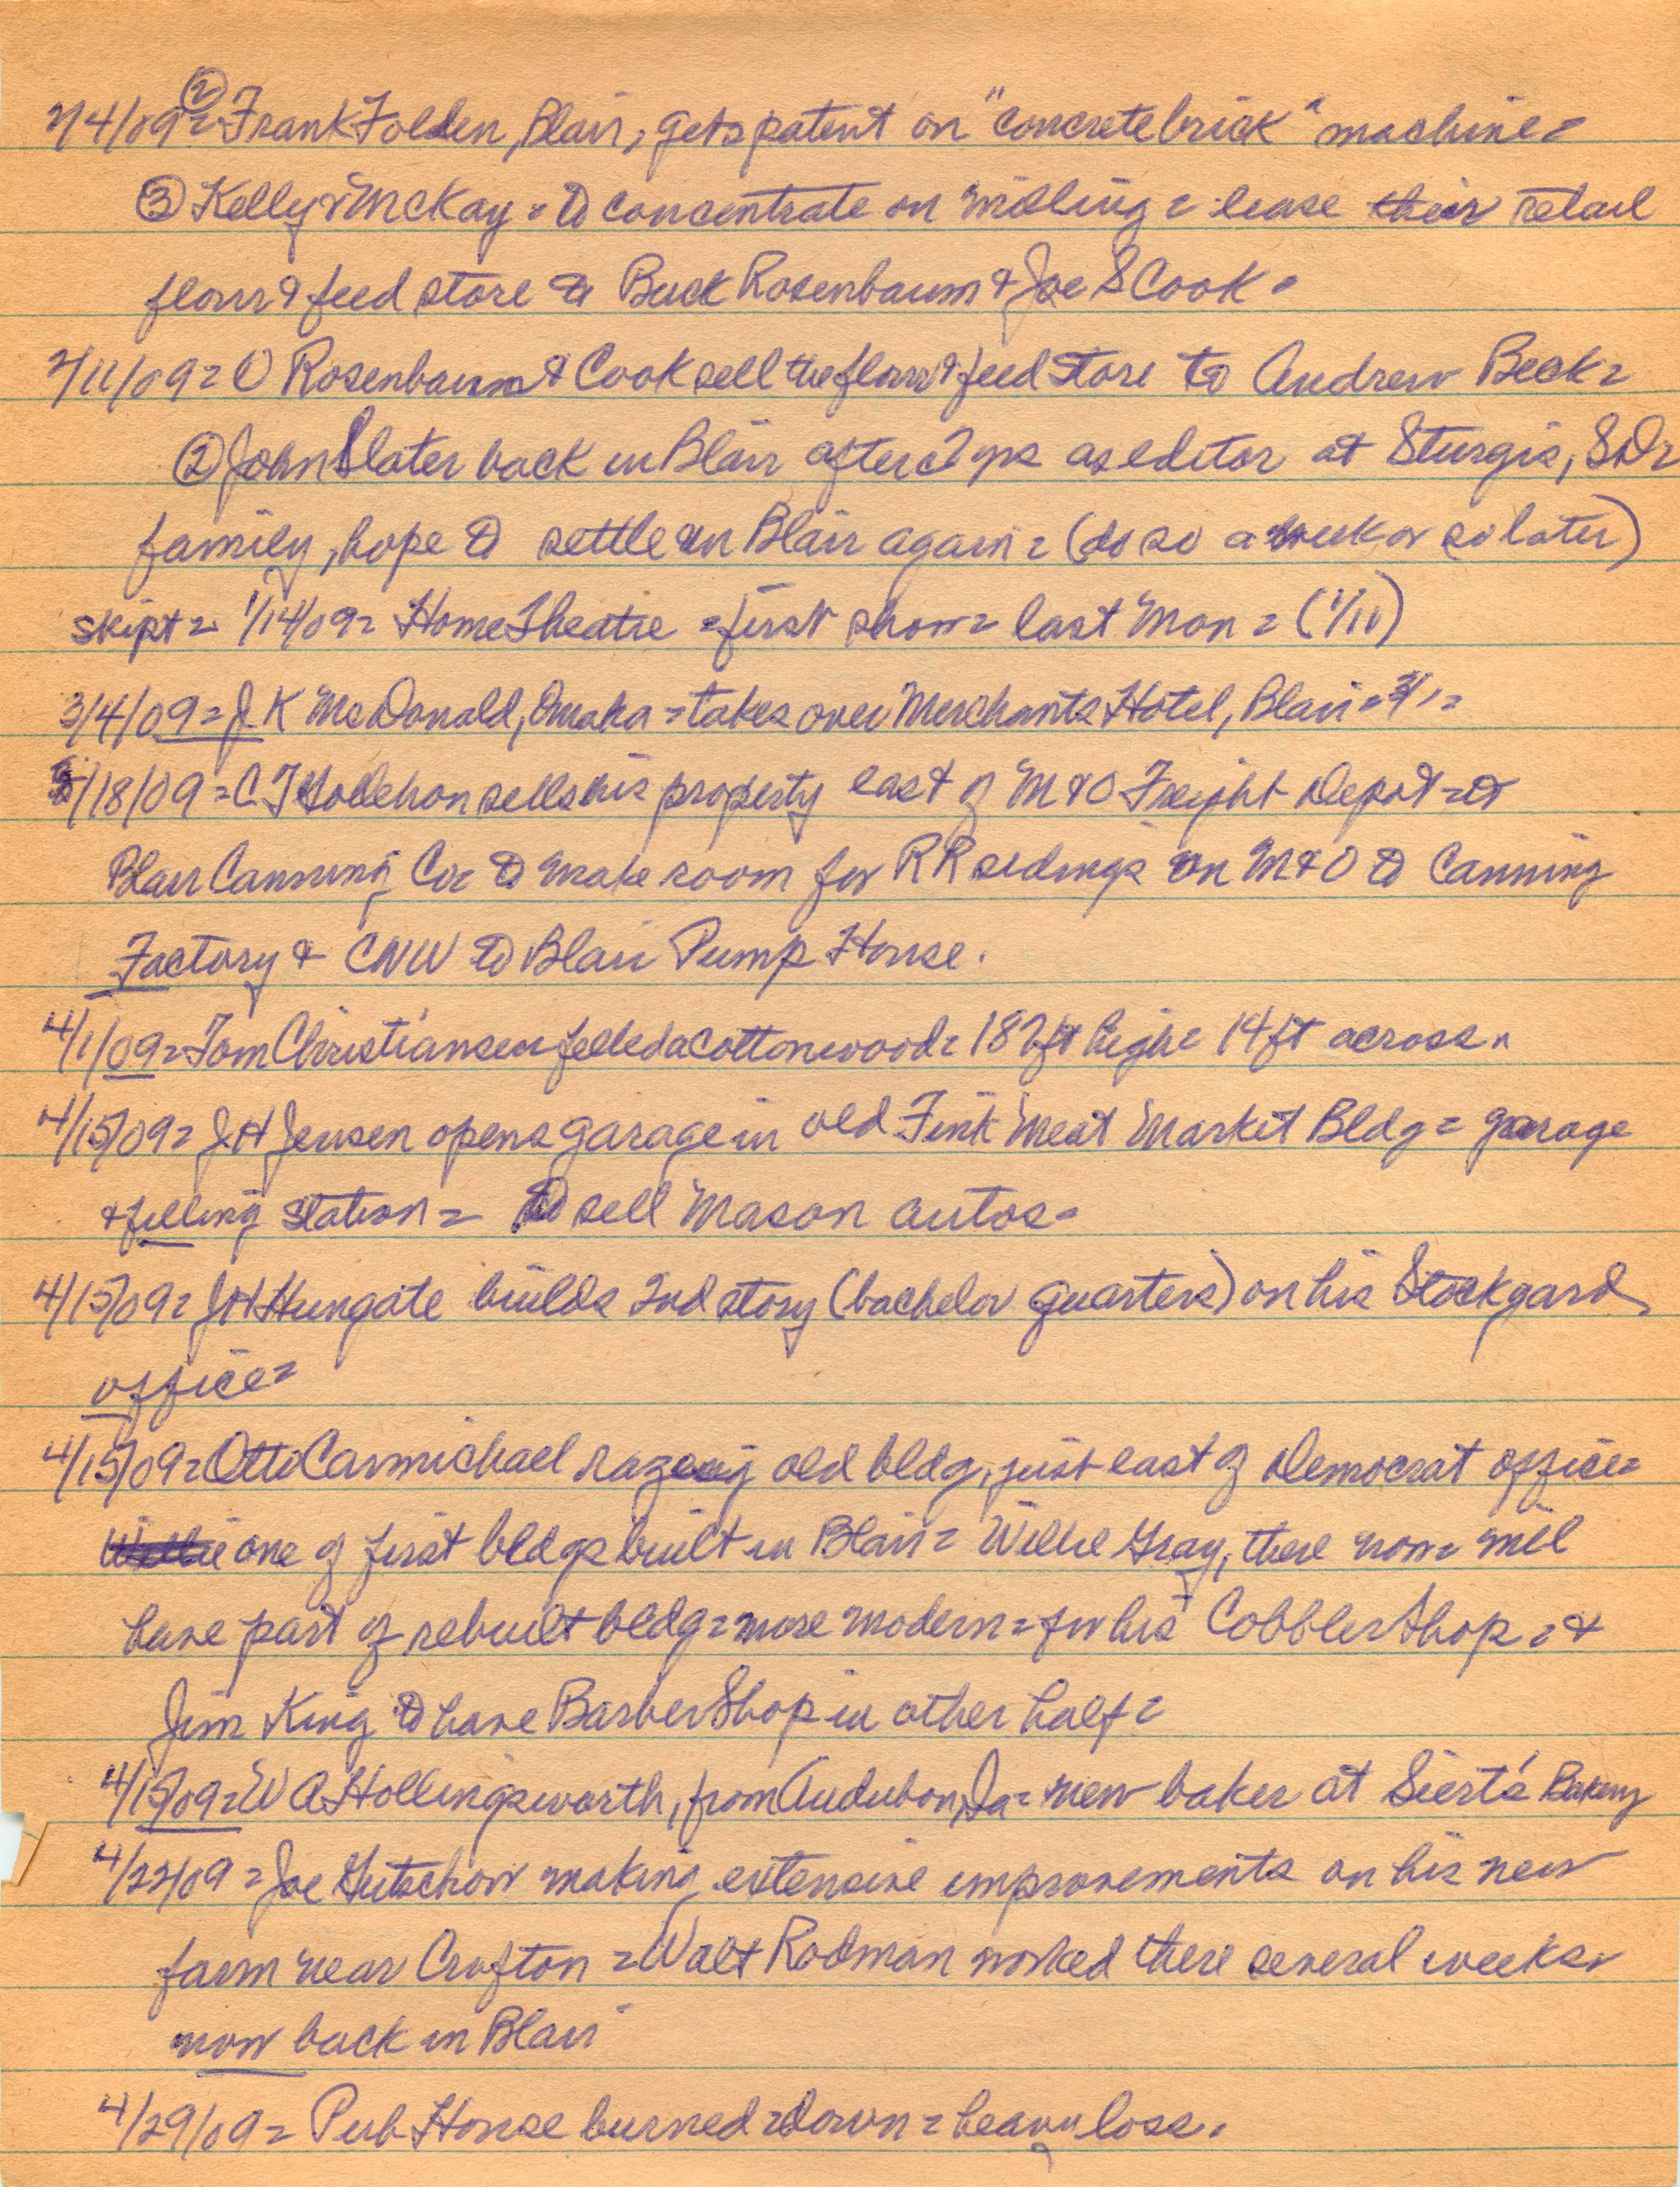 2/4/09 = ② Frank Folden, Blair, gets patent on "concrete brick" machine =
③ Kelly & McKay = to concentrate on milling = lease their retail
flour & feed store to Buck Rosenbaum & Joe S Cook =
2/11/09 = ① Rosenbaum & Cook sell the flour & feed store to Andrew Beck =
② John Slater back in Blair after 2 yrs as editor at Sturgis, SD =
family, hope to settle in Blair again = (do so a week or so later)
skipt = 1/14/09 = Home Theatre = first show = last Mon = (1/11)
3/4/09 = J. K McDonald, Omaha = takes over Merchants Hotel, Blair = 3/1 =
/18/09 = C. T sells his property east of M & O Freight Depot = to
Blair Canning Co = to make room for RR sidings on M & O to Canning
Factory & CNW to Blair Pump House.
4/1/09 = Tom Christiansen felled a cottonwood = 182 ft high = 14 ft across =
4/15/09 = J. H Jensen opens garage in old Fink Meat Market Bldg = garage
& filling station = to sell Mason autos =
4/15/09 = J H Hungate builds 2nd story (bachelor quarters) on his Stockyard
office =
4/15/09 = Otto Carmichael razeing old bldg, just east of Democrat office =
Willie one of first bldgs built in Blair = Willie Gray, there now = will
have part of rebuilt bldg = more modern = for his Cobbler Shop = &
Jim King to have Barber Shop in other half =
4/15/09 = W A Hollingsworth, from Audubon, Ia = new baker at Siert's Bakery
4/22/09 = Joe Gutschow making extensive improvements on his new
farm near Crofton = Walt Rodman worked there several weeks =
now back in Blair
4/29/09 = Pub House burned = down = heavy loss.